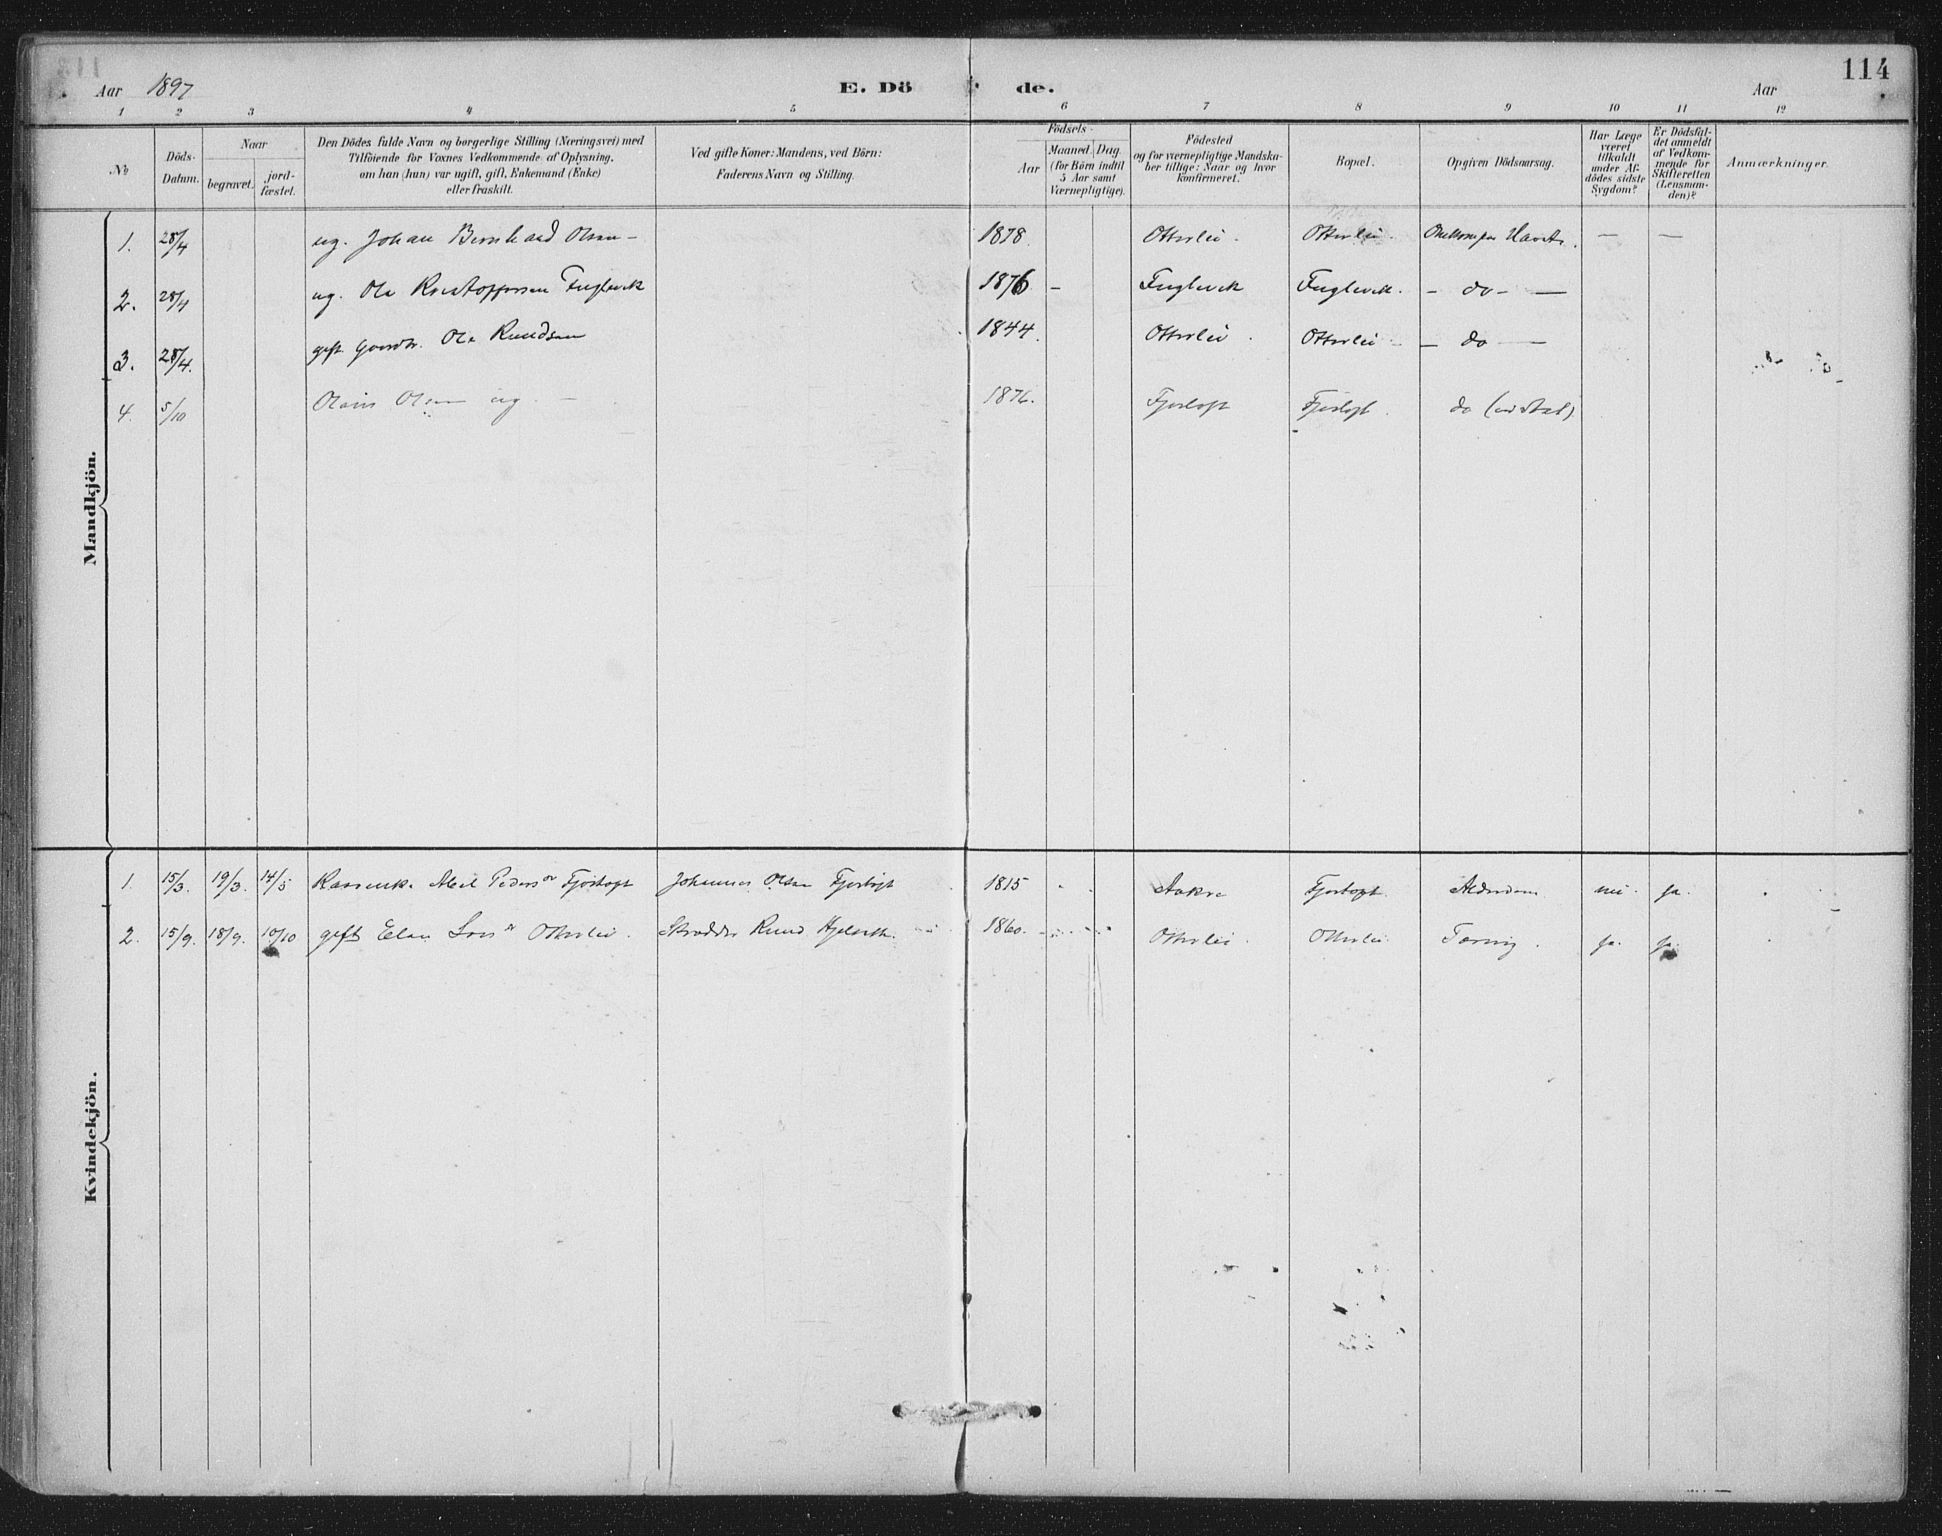 114
Aar 1897 E. Dö de. Aar
1 2 3 4 5 6 7 8 9 10 11 12
No
Döds-Datum.
Naar
begravet.
jord-fæstet.
Den Dödes fulde Navn og borgerlige Stilling (Næringsvei) med
Tilföiende for Voxnes Vedkommende af Oplysning,
om han (hun) var ugift, gift, Enkemand (Enke)
eller fraskilt.
Ved gifte Koner: Mandens, ved Börn:
Faderens Navn og Stilling.
Födsels-
Aar
Maaned Dag
(for Börn indtil
5 Aar samt
Værnepligtige).
Födested
og for værnepligtige Mandska-
ber tillige: Naar og hvor
konfirmeret.
Bopæl.
Opgiven Dödsaarsag.
Har Læge
været
tilkaldt
under Af-
dödes sidste
Sygdom?
Er Dödsfal-
det anmeldt
af Vedkom-
mende for
Skifteretten
(Lensman-
den)?
Anmærkninger.
Mandkjön.
1. 28/4 ug. Johan Bernhard Olsen - 1878. Otterlei. Otterlei. Havet. — —
2. 28/4 ug. Ole Kristoffersen Fuglevik 1876 - Fuglevik Fuglevik. - do - —
3. 28/4. gift Gaardbr. Ole Knudsen 1844. Otterlei. Otterlei - - do —
4. 5/10 Olaus Olsen ug. - 1876. Fjørtoft Fjørtoft. do
Kvindekjön.
1. 15/3. 19/3. 14/5 Peders Fjørtoft Johannes Olsen Fjørtoft 1815 Aakre Fjørtoft Alderdom nei. ja.
2. 15/9. 18/9. 10/10 gift Otterlei. Skrædder Knud 1860. Otterlei. Otterlei Tæring. ja. ja.